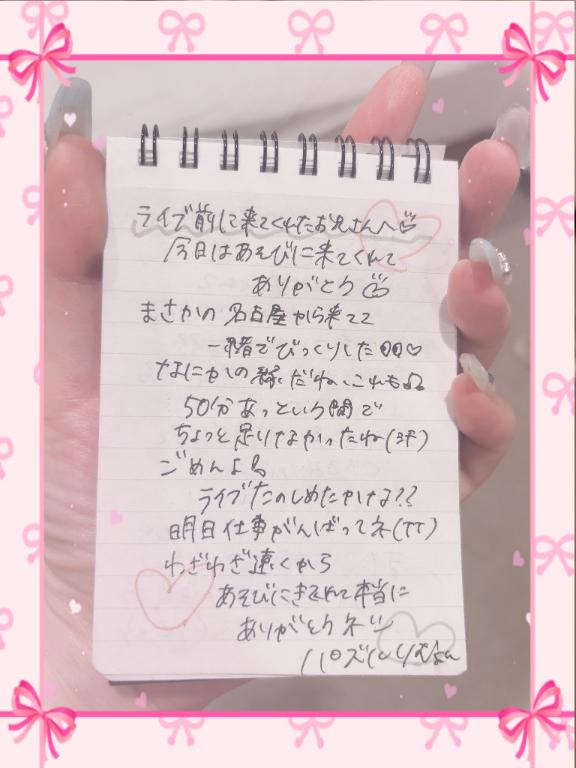 ライブ前に来てくれたお兄さんへ
今日はあそびに来てくれて
ありがとう
まさかの名古屋から来てて
一緒でびっくりした
なにかの縁だね、これも
50分あっという間で
ちょっと足りなかったね(汗)
ごめんよ
ライブたのしめたかな??
明日仕事がんばってネ(TT)
わざわざ遠くから
あそびにきてくれて本当に
ありがとうネ